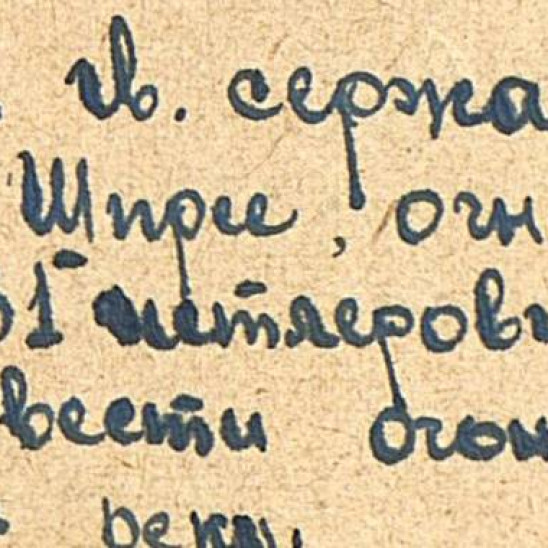 гв. сержа
Шпрее, огн
01 гитлеров
вести огон
реки